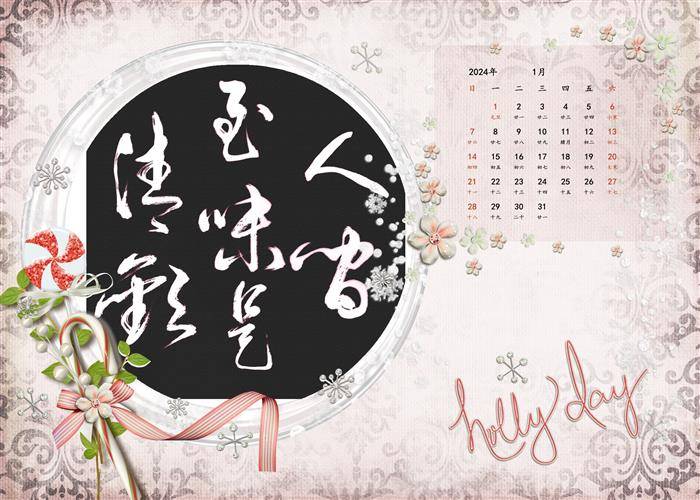 人間
至味是
清歡
2024年 1月
日 一 二 三 四 五 六
1 2 3 4 5 6
元旦 廿一 廿二 廿三 廿四 小寒
7 8 9 10 11 12 13
廿六 廿七 廿八 廿九 腊月 初二 初三
14 15 16 17 18 19 20
初四 初五 初六 初七 腊八 初九 大寒
21 22 23 24 25 26 27
十一 十二 十三 十四 十五 十六 十七
28 29 30 31
十八 十九 二十 廿一
holly day